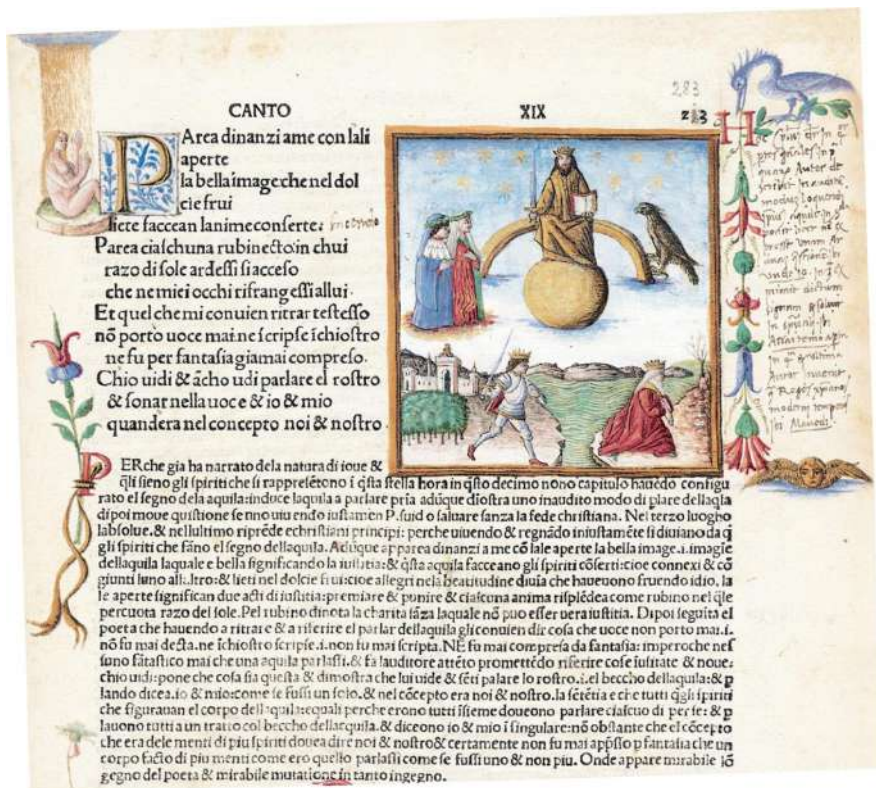 CANTO XIX
283
213
PArea dinanzi ame con lali
aperte
la bella image che nel dol
cie frui
liete faccean lanime conserte:
Parea ciaschuna rubinecto in chui
razo di sole ardessi si acceso
che ne miei occhi rifrangessi allui.
Et quel che mi conuien ritrar testesso
nõ portò uoce mai: ne scripse ĩchiostro
ne fu per fantasia giamai compreso.
Chio uidi & ãcho udi parlare el rostro
& sonar nella uoce & io & mio
quandera nel concepto noi & nostro.
PERche gia ha narrato dela natura di ioue &
q̃li sieno gli spiriti che si rappresẽtono ĩ q̃sta stella hora in q̃sto decimo nono capitulo hauẽdo configu
rato el segno dela aquila: induce laquila a parlare pria adũque dĩostra uno inaudito modo di plare dellaq̃la
di poi moue quistione se nno uiuendo iustamen P. suid o saluare sanza la fede christiana. Nel terzo luogho
labsolue. & nellultimo riprẽde echristiani principi: perche uiuendo & regnãdo iniustamẽte si diuiano da q̃
gli spiriti che fãno el segno dellaquila. Adũque apparea dinanzi a me cõ lale aperte la bella image. i. imagĩe
dellaquila laquale e bella significando la iustitia: & q̃sta aquila facceano gli spiriti cõserti: cioe connexi & cõ
giunti luno all. ltro: & lieti nel dolcie frui: cioe allegri nela beatitudine diuĩa che haueuono fruendo idio. la
le aperte significan due acti di iustitia: premiare & punire & ciascuna anima risplẽdea come rubino nel q̃le
percuota razo del sole. Pel rubino dinota la charita sãza laquale nõ puo esser uera iustitia. Dipoi seguita el
poeta che hauendo a ritrare & a riferire el parlar dellaquila gli conuien dir cosa che uoce non porto mai. i.
nõ fu mai decta. ne ĩchiostro scripse. i. non fu mai scripta. NE fu mai compresa da fantasia: imperoche nes
suno fãtastico mai che una aquila parlassi. & fa lauditore attẽto promettẽdo riferire cose iusitate & noue:
chio uidi: pone che cosa sia questa & dimostra che lui uide & sẽti palare lo rostro. i. el beccho dellaquila: & p
lando dicea. io & mio: come se fussi un solo. & nel cõcepto era noi & nostro. la sẽtẽtia e che tutti q̃gli spiriti
che figurauan el corpo dell aquila: equali perche erono tutti ĩsieme doueono parlare ciascuo di per se: & p
lauono tutti a un tratto col beccho dellacquila. & diceono io & mio ĩ singulare: nõ obstante che el cõcepto
che era dele menti di piu spiriti douea dire noi & nostro & certamente non fu mai app̃so p fantasia che un
corpo facto di piu menti come ero quello parlassi come se fussi uno & non piu. Onde appare mirabile ĩõ
gegno del poeta & mirabile mutatione in tanto ingegno.